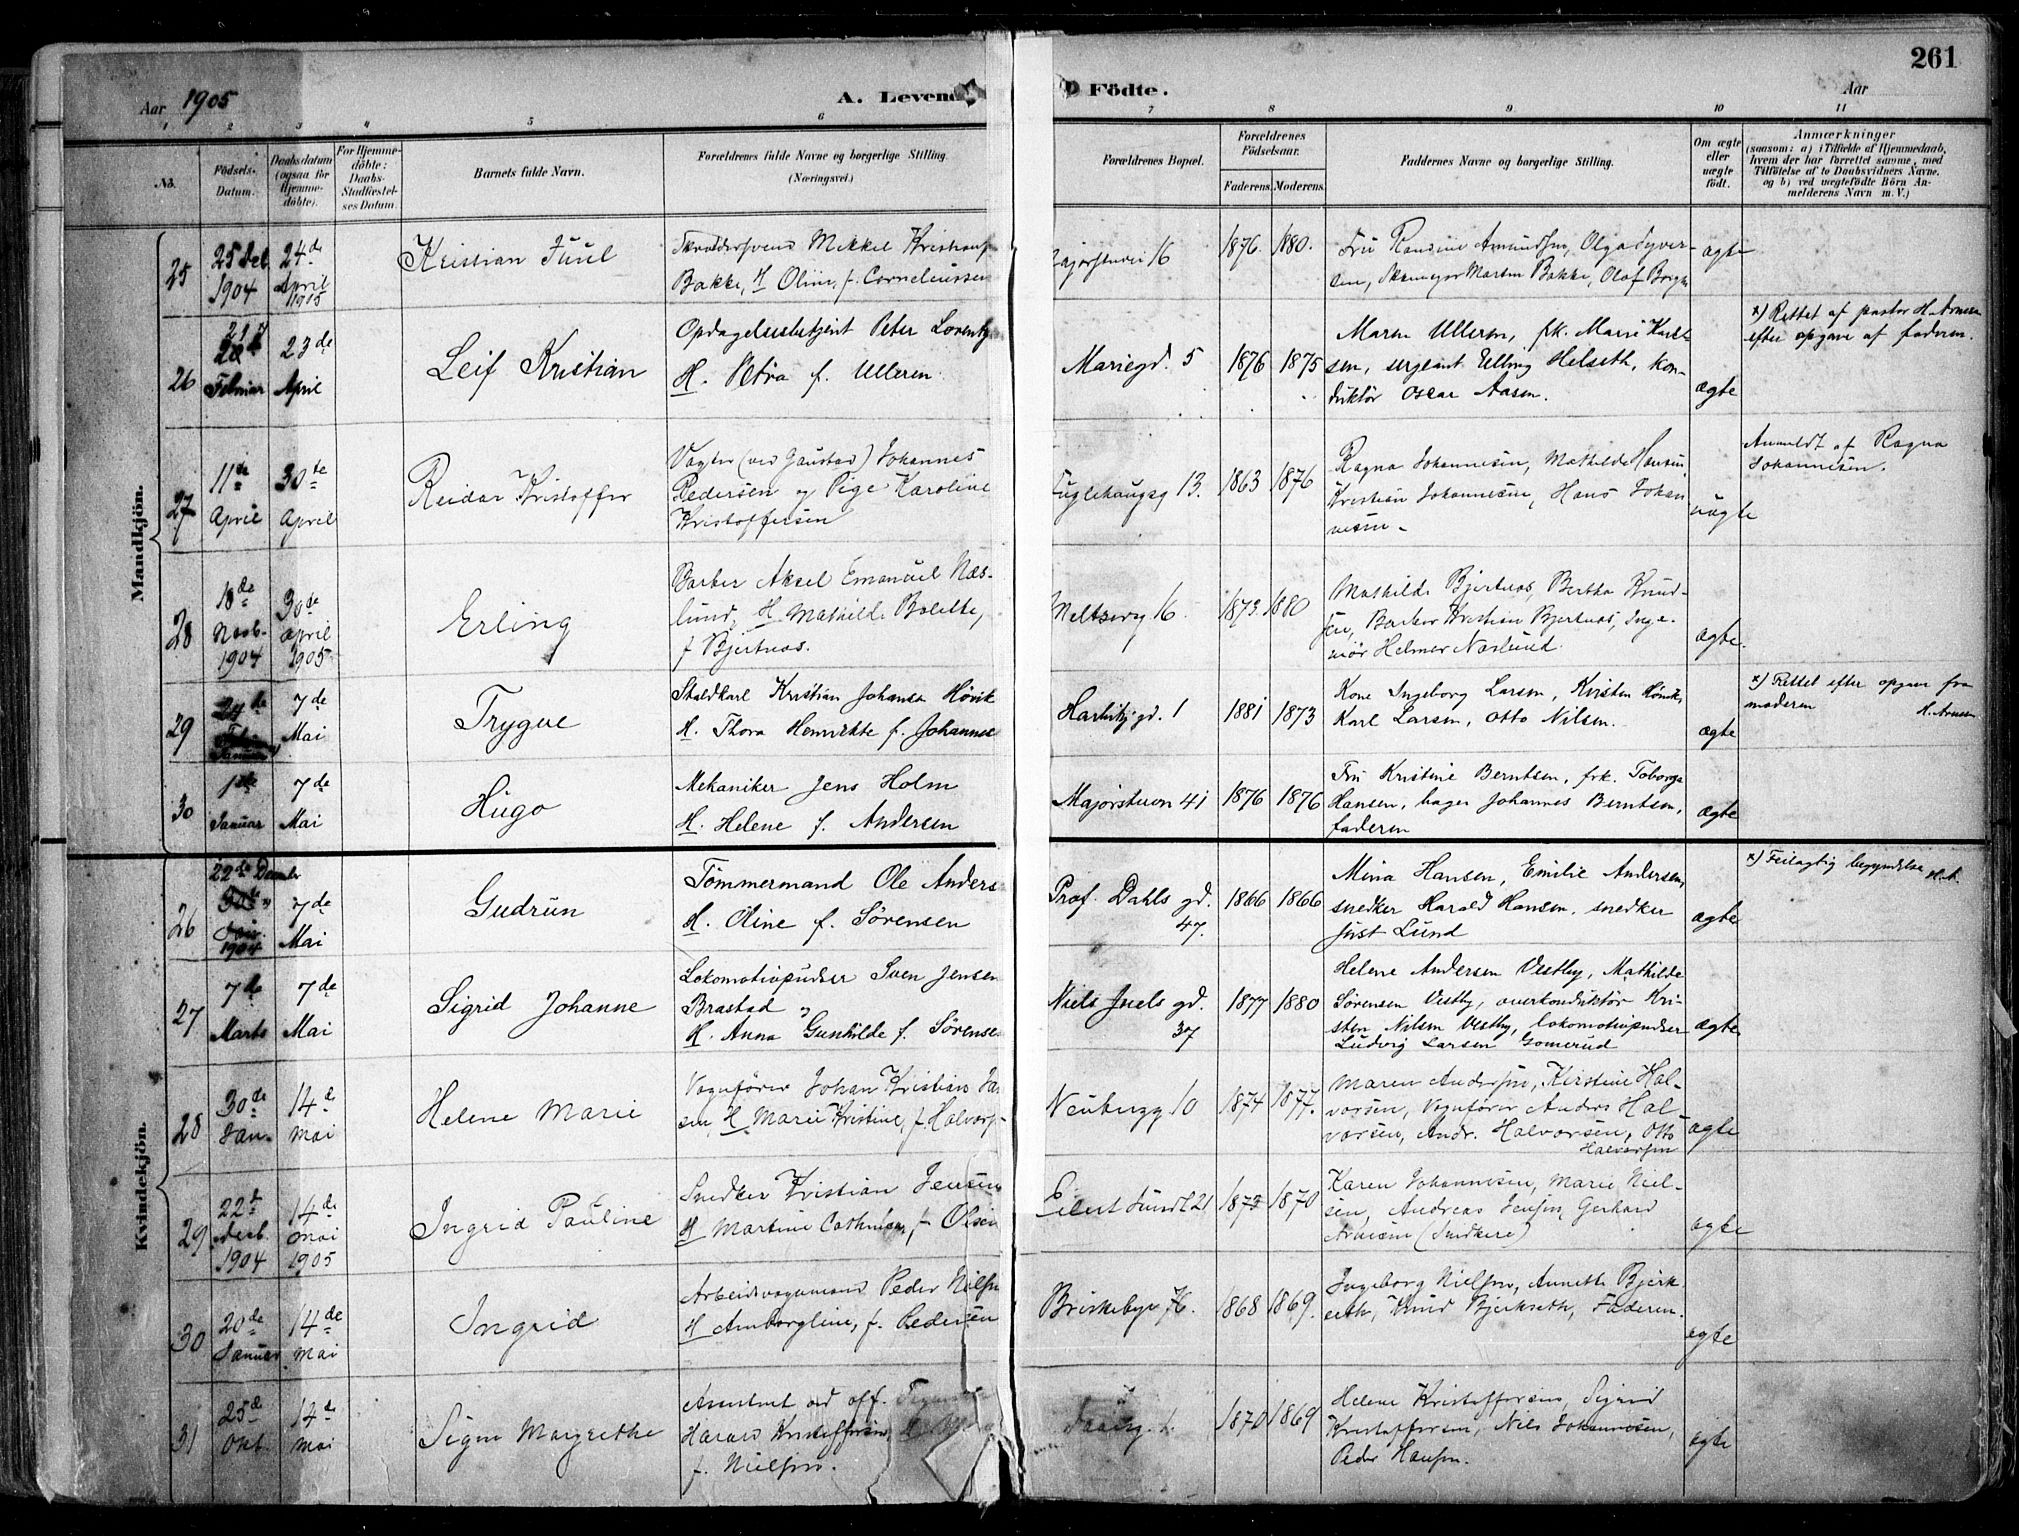 261
Aar 1905
A. Levende Födte.
Aar
1 2 3 4 5 6 7 8 9 10 11
No.
Födsels-
Datum.
Daabsdatum
(ogsaa for
Hjemme-
döbte).
For Hjemme-
döbte:
Daabs-
Stadfæstel-
ses Datum.
Barnets fulde Navn.
Forældrenes fulde Navne og borgerlige Stilling.
(Næringsvei.)
Forældrenes Bopæl.
Forældrenes
Födselsaar.
Faderens. Moderens.
Faddernes Navne og borgerlige Stilling.
Om ægte
eller
uægte
født.
Anmærkninger
(saasom: a) i Tilfælde af Hjemmedaab,
hvem der har forrettet samme, med
Tilföielse af to Daabsvidners Navne,
og b) ved uægtefödte Börn An-
melderens Navn m. V.)
Mandkjön.
25
25 Dec.
1904
24de
April
1905
Kristian Juul
Skræddersvend Mikkel
Bakke, H Oline, f. Corneliussen
16
1876. 1880.
Fru Amundsen, Olga Syver-
sen, Martin Bakke, Olaf
ægte
26
Februar
23de
April
Leif Kristian
Opdagelsesbetjent Peter Lorentz
H. Petra f. Ulleren.
Mariegd. 5
1876 1875
Maren Ulleren, frk. Marie Karl-
sen, sergeant Elling Helseth, kon-
duktör Oscar Aasen.
ægte
x) Rettet af pastor H. Arnesen
efter opgave af faderen.
27
11te
April
30te
April
Reidar Kristoffer
Vogter (ved Gaustad) Johannes
Pedersen og Pige Karoline
Kristoffersen
Fuglehaugsg 13.
1863 1876
Ragna Johannesen, Mathilde Hansen,
Kristian Johannesen, Hans Johan
nesen.
uægte
Anmeldt af Ragna
Johannesen.
28
18de
Novb.
1904
30te
April
1905
Erling
Barber Aksel Emanuel Næs-
lund, H Mathilde Bolette,
f Bjertnæs.
Meltzersg 16
1873. 1880
Mathilde Bjertnæs, Bertha Knud-
sen, Barber Kristian Bjertnæs, Inge-
niør Helmer Næslund.
ægte.
29
7de
Mai
Trygve
Staldkarl Kristian Johansen Hövik
H. Thora Henrikke f. Johannes
gd. 1
1881 1873
Kone Ingeborg Larsen, Kirsten Hövik,
Karl Larsen, Otto Nilsen.
ægte
x) Rettet efter opgave fra
moderen H. Arnesen
30
1ste
Januar
7de
Mai
Hugo
Mekaniker Jens Holm
H. Helene f. Andersen
Majorstuvn 41
1876 1876
Fru Kristine Berntsen, frk. Toborga
Hansen, bager Johannes Berntsen,
faderen
ægte
Kvindekjön.
26
22de December
1904
7de
Mai
Gudrun
Tömmermand Ole Anders
H. Oline f. Sørensen
Prof. Dahls gd.
47.
1866 1866
Mina Hansen, Emilie Andersen,
snedker Harald Hansen, snedker
Just Lund
ægte
x) Feilagtig begyndelse H.A.
27
7de
Marts
7de
Mai
Sigrid Johanne
Lokomotivpudser Sven Jensen
Brastad
H. Anna Gunhilde f. Sørensen
Niels Juels gd.
37
1877 1880
Helene Andersen Vestby, Mathilde
Sørensen Vestby, overkonduktör Kri-
sten Nilsen Vestby, lokomotivpudser
Ludvig Larsen Gomerud
ægte
28
30de
Jan.
14de
Mai
Helene Marie
Vognfører Johan Kristian
sen, H Marie Kristine, f. Halvors-
Neuberggg 10
1874 1877.
Maren Andersen, Kirstine Hal-
vorsen, Vognfører Anders Hal-
vorsen, Andr. Halvorsen, Otto
Halvorsen
ægte
29
22de
Decb.
1904
14de
Mai
1905
Ingrid Pauline
Snedker Kristian Jensen
H Martine Cathrine, f. Olsen
Eilert Sundt 21
1873 1870
Karen Johannesen, Marie Niel-
sen, Andreas Jensen, Gerhard
(Snedkere)
ægte
30
20de
Januar
14de
Mai
Ingrid
Arbeidsvognmand Peder Nilsen
H Amborgline, f. Pedersen
Briskebyv
1868 1869.
Ingeborg Nielsen, Annette Bjerk-
seth, Knud Bjerkseth, Faderen.
ægte
31
25de
Okt.
14de
Mai
Signe Margrethe
Harald Kristoffersen,
f. Nielsen.
1870 1869
Helene Kristoffersen, Sigrid
Kristoffersen, Nils Johannesen,
Peder Hansen.
ægte